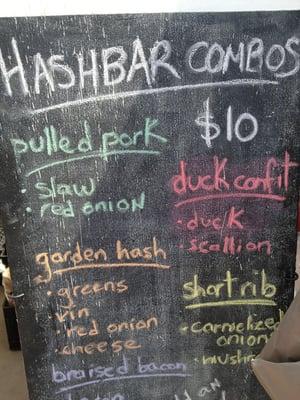 HASHBAR COMBOS
$10
pulled pork
• slaw
• red onion
duck confit
• duck
• scallion
garden hash
• greens
• red onion
• cheese
short rib
• carmelized
onion
braised bacon